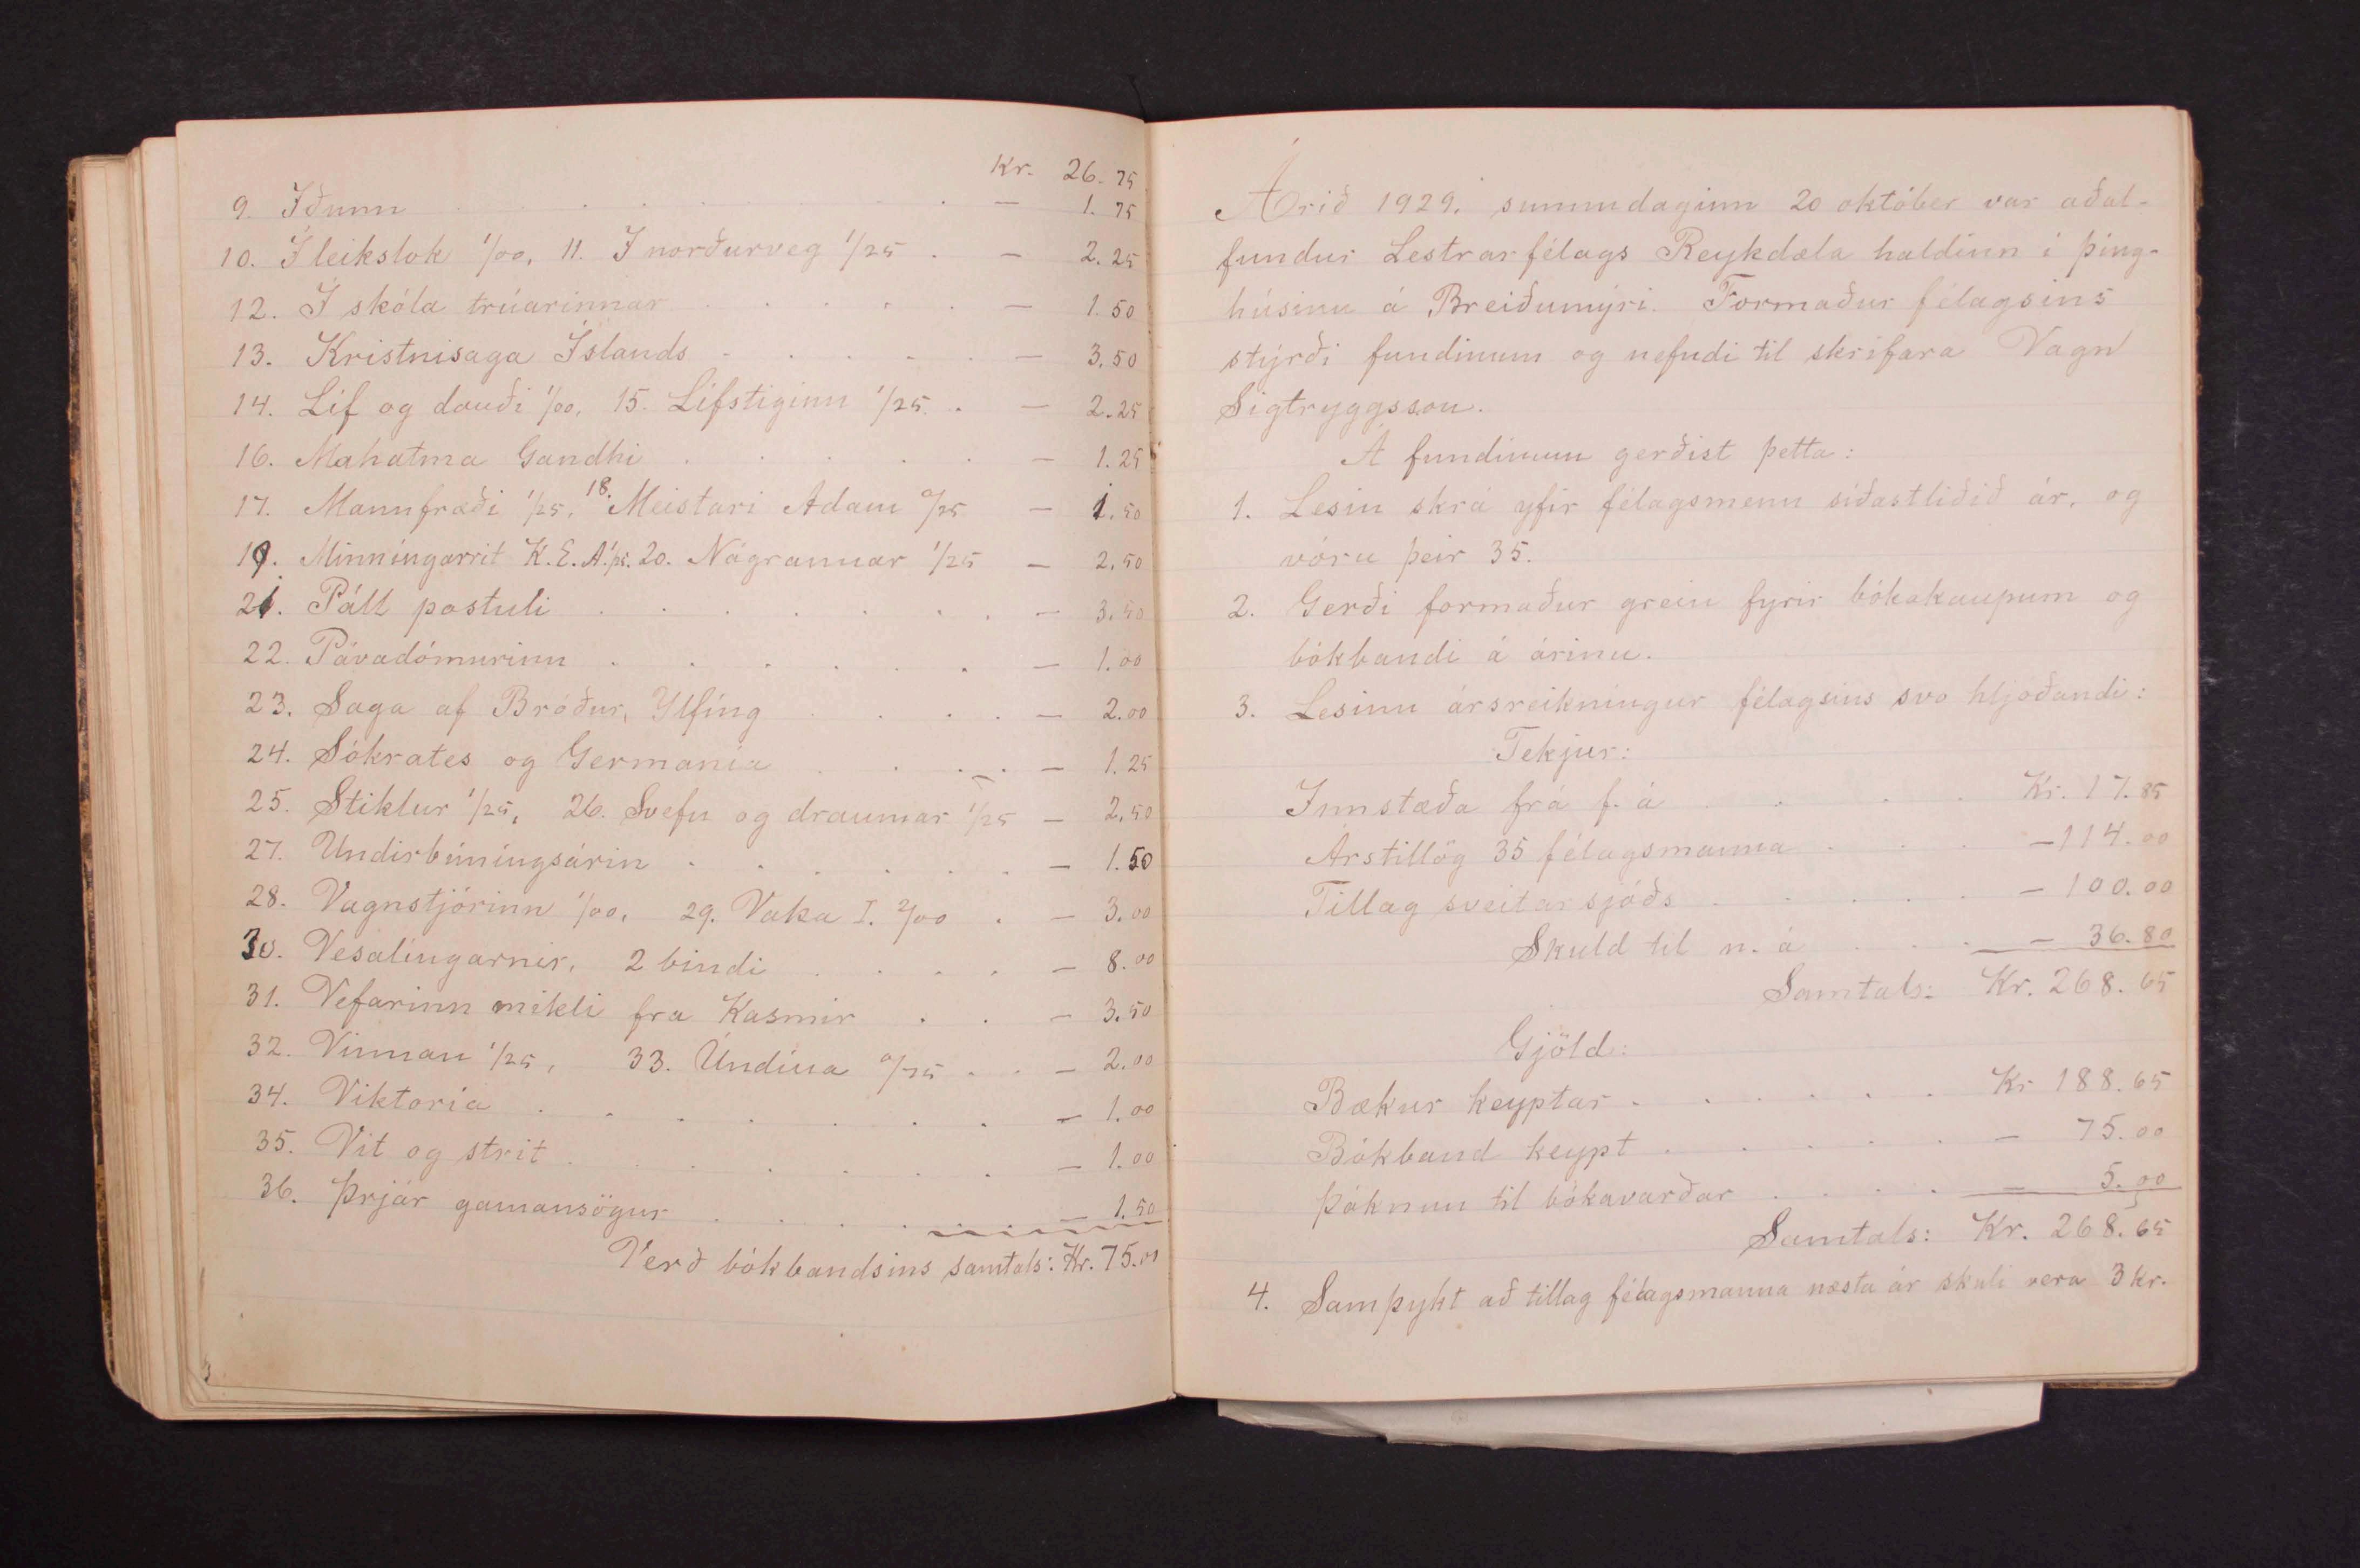 Kr. 26.75
9. Iðunn . . . . . . . — 1.75
10. Í leikslok 1/00, 11. Í norðurveg 1/25 . — 2.25
12. Í skóla trúarinnar . . . . . — 1.50
13. Kristnisaga Íslands . . . . . — 3.50
14. Líf og dauði 1/00, 15. Lífstiginn 1/25 . — 2.25
16. Mahatma Gandhi . . . . . — 1.25
17. Mannfræði 1/25, 18. Meistari Adam 0/25 — 1.50
19. Minningarrit K.E. 20. Nágrannar 1/25 — 2.50
21. Páll postuli . . . . . . . — 3.50
22. Pávadómurinn . . . . . . — 1.00
23. Saga af Bróður, Ylfing . . . . — 2.00
24. Sókrates og Germanía . . . . — 1.25
25. Stiklur 1/25, 26. Svefn og draumar 1/25 — 2.50
27. Undirbúningsárin . . . . . . — 1.50
28. Vagnstjórinn 1/00, 29. Vaka I. 2/00 . — 3.00
30. Vesalingarnir, 2 bindi . . . . — 8.00
31. Vefarinn mikli fra Kasmir . . — 3.50
32. Vinnan 1/25, 33. Úndína 0/75 . . — 2.00
34. Viktoría . . . . . . . — 1.00
35. Vit og strit . . . . . . . — 1.00
36. Þrjár gamansögur . . . . . — 1.50
Verð bókbandsins samtals: Kr. 75.00
Árið 1929. sunnudaginn 20 október var aðal-
fundur Lestrarfélags Reykdæla haldinn í þing-
húsinu á Breiðumýri. Formaður félagsins
stýrði fundinum og nefndi til skrifara Vagn
Sigtryggsson.
Á fundinum gerðist þetta:
1. Lesin skrá yfir félagsmenn síðastliðið ár, og
vóru þeir 35.
2. Gerði formaður grein fyrir bókakaupum og
bókbandi á árinu.
3. Lesinn ársreikningur félagsins svo hljóðandi:
Tekjur:
Innstæða frá f. á . . . . . Kr. 17.85
Árstillög 35 félagsmanna . . . — 114.00
Tillag sveitarsjóðs . . . . . — 100.00
Skuld til n. á . . . — 36.80
Samtals: Kr. 268.65
Gjöld:
Bækur keyptar . . . . . . Kr 188.65
Bókband keypt . . . . . — 75.00
Þóknun til bókavarðar . . . . — 5.00
Samtals: Kr. 268.65
4. Samþykt að tillag félagsmanna næsta ár skuli vera 3 kr.